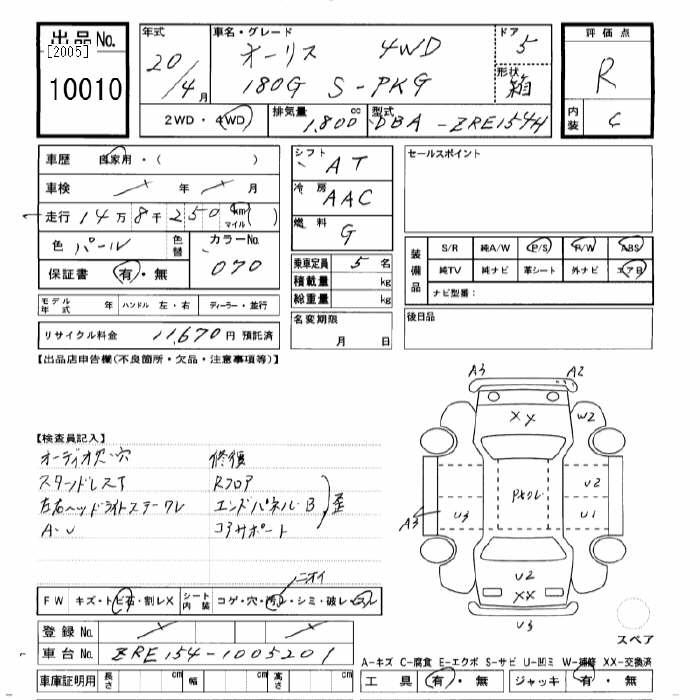 出品No.
[2005]
10010
年式
20/4月
車名・グレード
オーリス 4WD
180G S-PKG
ドア 5
形状 箱
評価点
R
内装 C
2WD・4WD
排気量 1,800 cc
型式 DBA-ZRE154H
車歴 自家用・( )
車検 年 月
走行 14万8千250 km マイル ( )
色 パール 色替 カラーNo. 070
保証書 有・無
モデル年式 年 ハンドル 左・右 ディーラー・並行
リサイクル料金 11,670円 預託済
シフト AT
冷房 AAC
燃料 G
乗車定員 5名
積載量 kg
総重量 kg
名変期限 月 日
セールスポイント
装備品 S/R 純A/W P/S P/W ABS
純TV 純ナビ 革シート 外ナビ エアB
ナビ型番:
後日品
【出品店申告欄(不良箇所・欠品・注意事項等)】
【検査員記入】
オーディオ欠・穴
左右ヘッドライトステークレ
A・U
修復
Rフロア
エンドパネル・B 歪
コアサポート
F W キズ・トビ石・割レX シート内装 コゲ・穴・汚レ・シミ・破レ・スレ
ニオイ
登録No.
車台No. ZRE154-1005201
車庫証明用 長さ cm 幅 cm 高さ cm
A3 A2
XX
W2
U2
U1
A3
U3
U2
XX
U3
スペア
A-キズ C-腐食 E-エクボ S-サビ U-凹ミ W-補修 XX-交換済
工具 有・無 ジャッキ 有・無